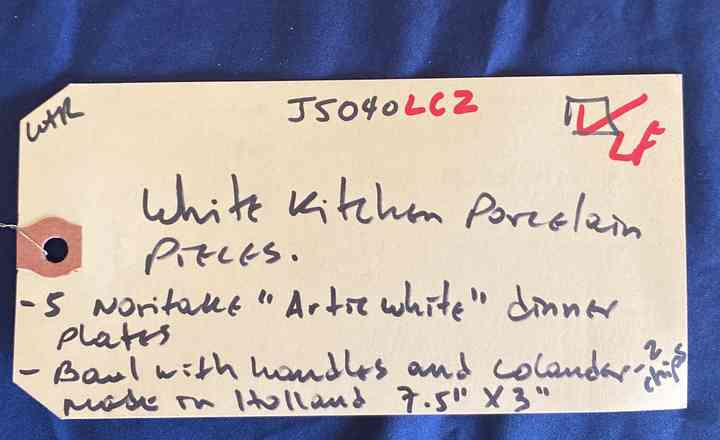 WHR
JS040LCZ
LF
White Kitchen Porcelain
PIECES.
- 5 Noritake "Artic white" dinner
plates
- Bowl with handles and colander - 2 chips
made in Holland 7.5" X 3"